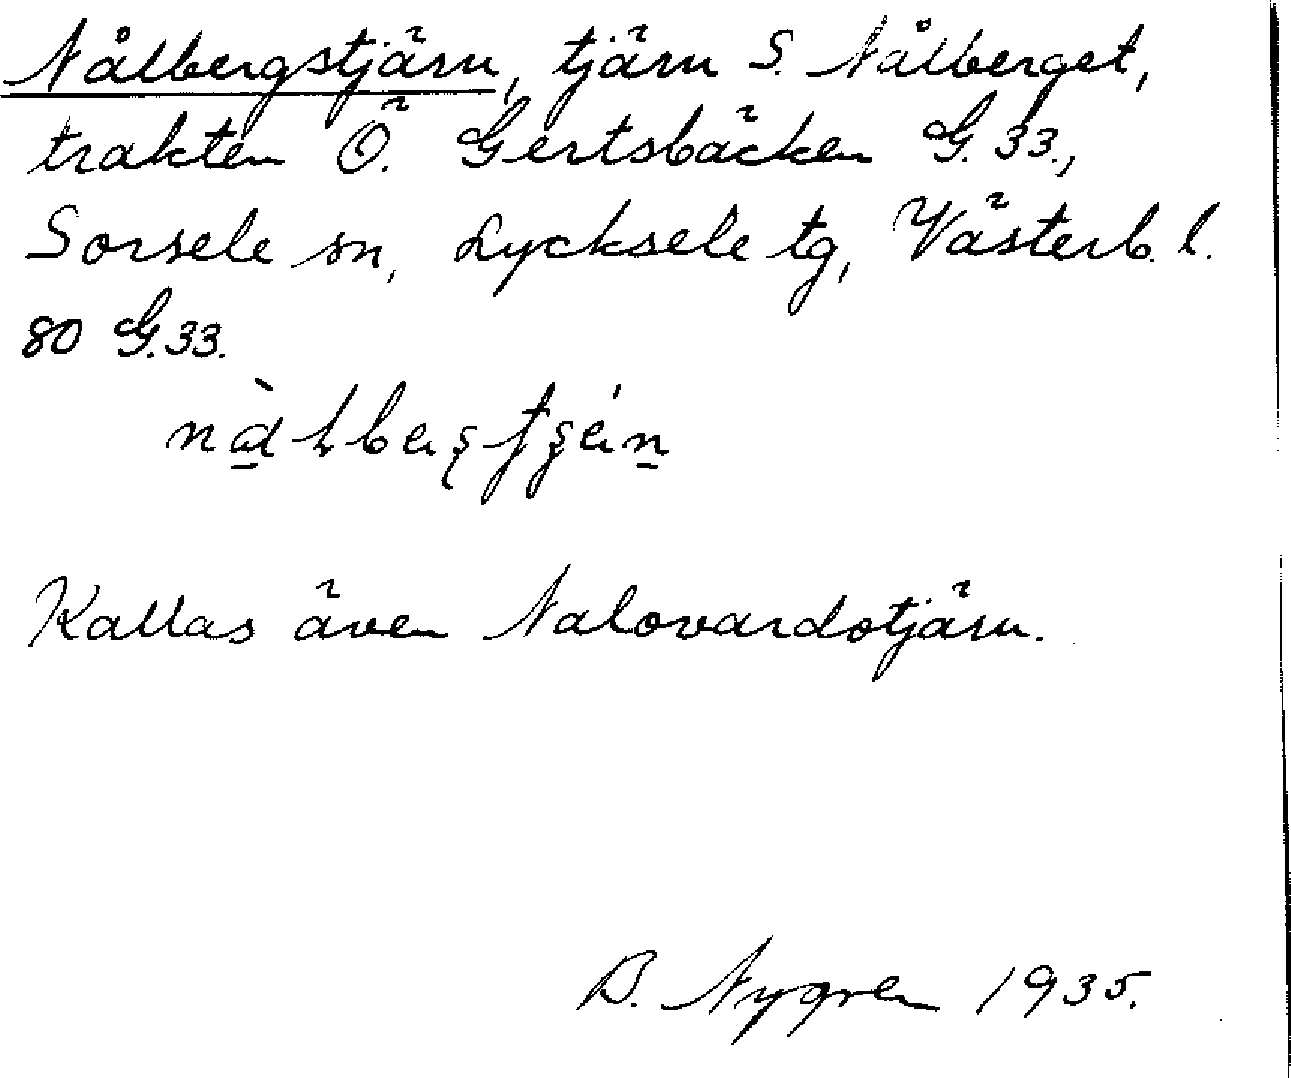 Nålbergstjärn, tjärn S. Nålberget,
trakten Ö. Gertsbäcken G. 33.,
Sorsele sn, Lycksele tg, Västerb. l.
80 G. 33.
Kallas även Nalovardotjärn.
B. Nygren 1935.